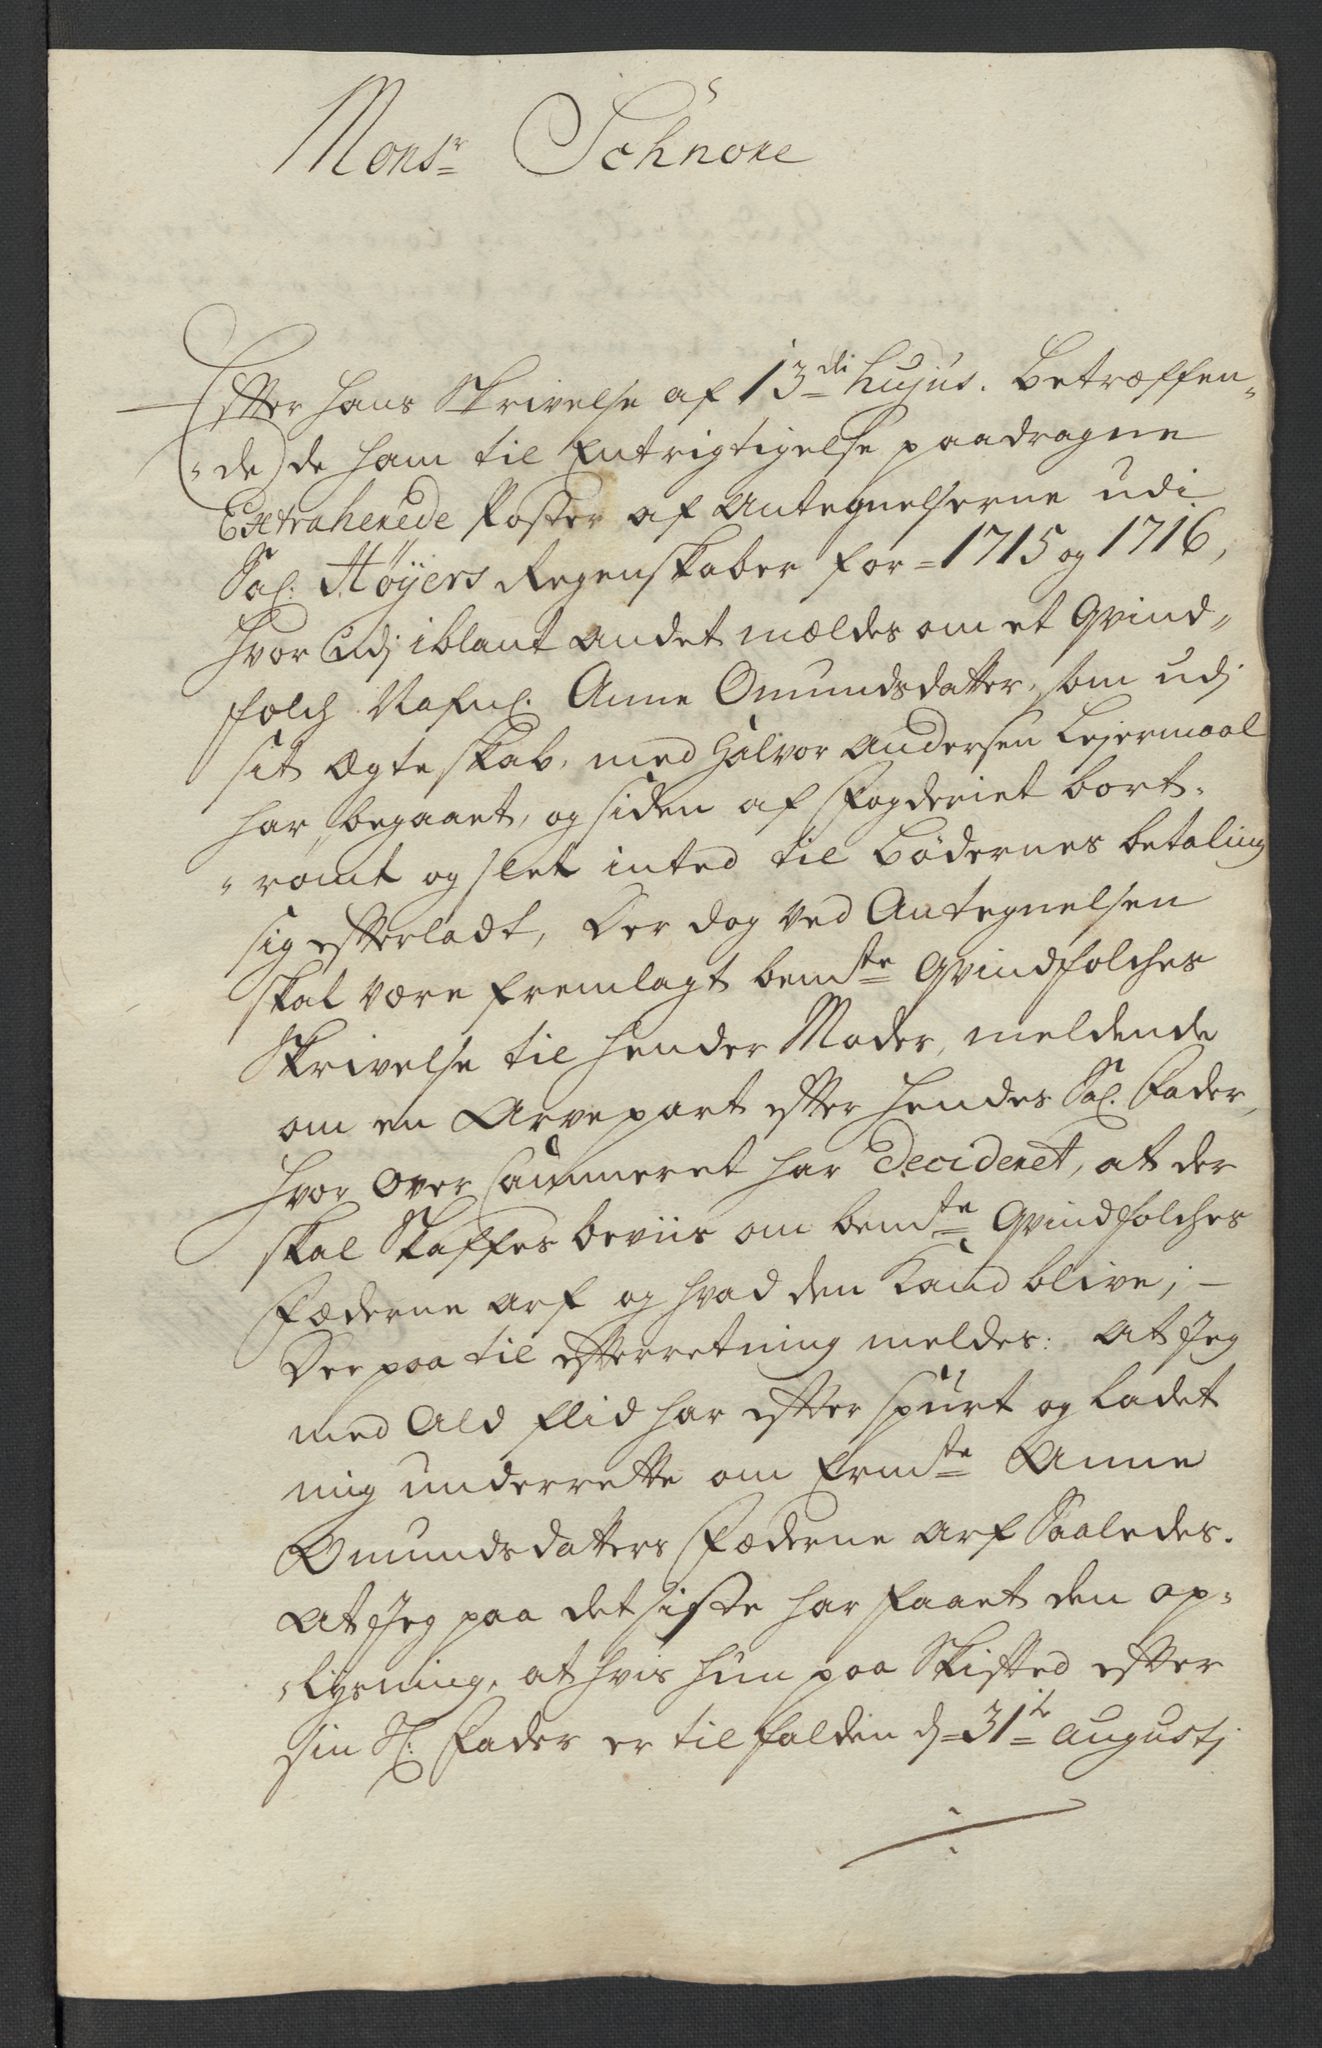 Monsr Schnore
Efter hans Skrivelse af 13di hujus. Betræffen-
-de de ham til Entrigtigelse paadragne
Extraherede Poster af Antegnelserne udi
Sal: Høyers Regenskaber for 1715 og 1716,
hvor Udj iblant andet mældes om et Qvind-
folch Nafnl. Anne Omundsdatter, som udj
sit Ægteskab, med Halvor Andersen Lejermaal
har begaaet, og siden af Fogderiet bort-
-rømt og slet inted til Bødernes betaling
sig efterladt, Der dog ved Antegnelsen
skal være fremlagt bemte Qvindfolches
Skrivelse til hender Moder, meldende
om en Arvepart efter hendes Sal. Fader,
hvor over Cammeret har Decideret, at der
skal Skaffes beviis om bemte Qvindfolches
Fæderne arf og hvad den Kand blive; -
Der paa til efterretning meldes: At Jeg
med Ald flid har efter spurt og ladet
mig underrette om Ermte Anne
Omundsdatters Fæderne Arf Saaledes.
At Jeg paa det siste har faaet den op-
-lysning, at hvis hun paa Skifted efter
sin Sl: Fader er tilfalden d= 31te Augustj